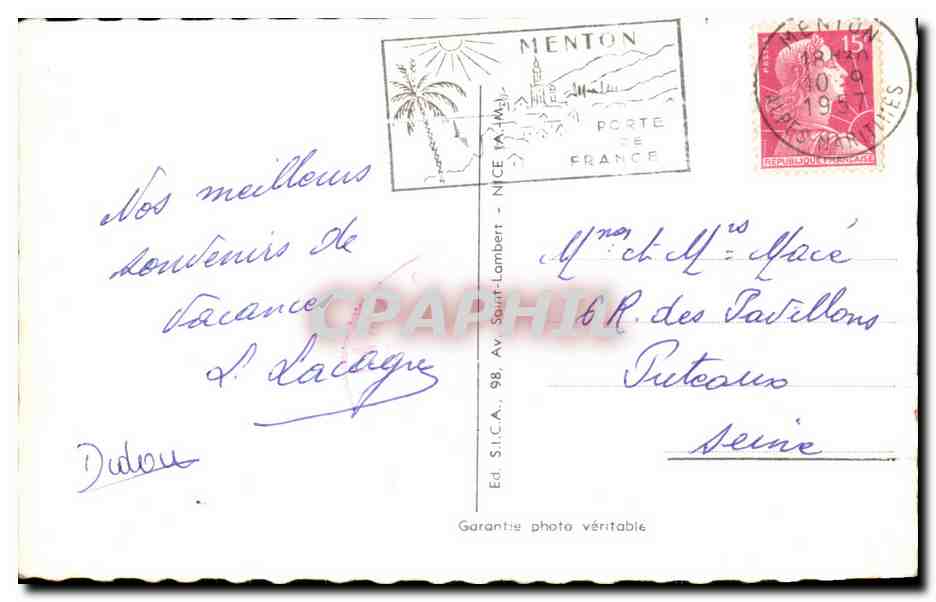 MENTON
PORTE
DE
FRANCE
MENTON
18H30
10-9
1957
ALPES-MARITIMES
15F
POSTES
REPUBLIQUE FRANÇAISE
Nos meilleurs
souvenirs de
vacances
L. Lacagne
Didou
Ed. S.I.C.A., 98, Av. Saint-Lambert - NICE (A.-M.)
Mme et Mrs = Macé
6 R. des Pavillons
Puteaux
Seine
Garantie photo véritable
CPAPHIL